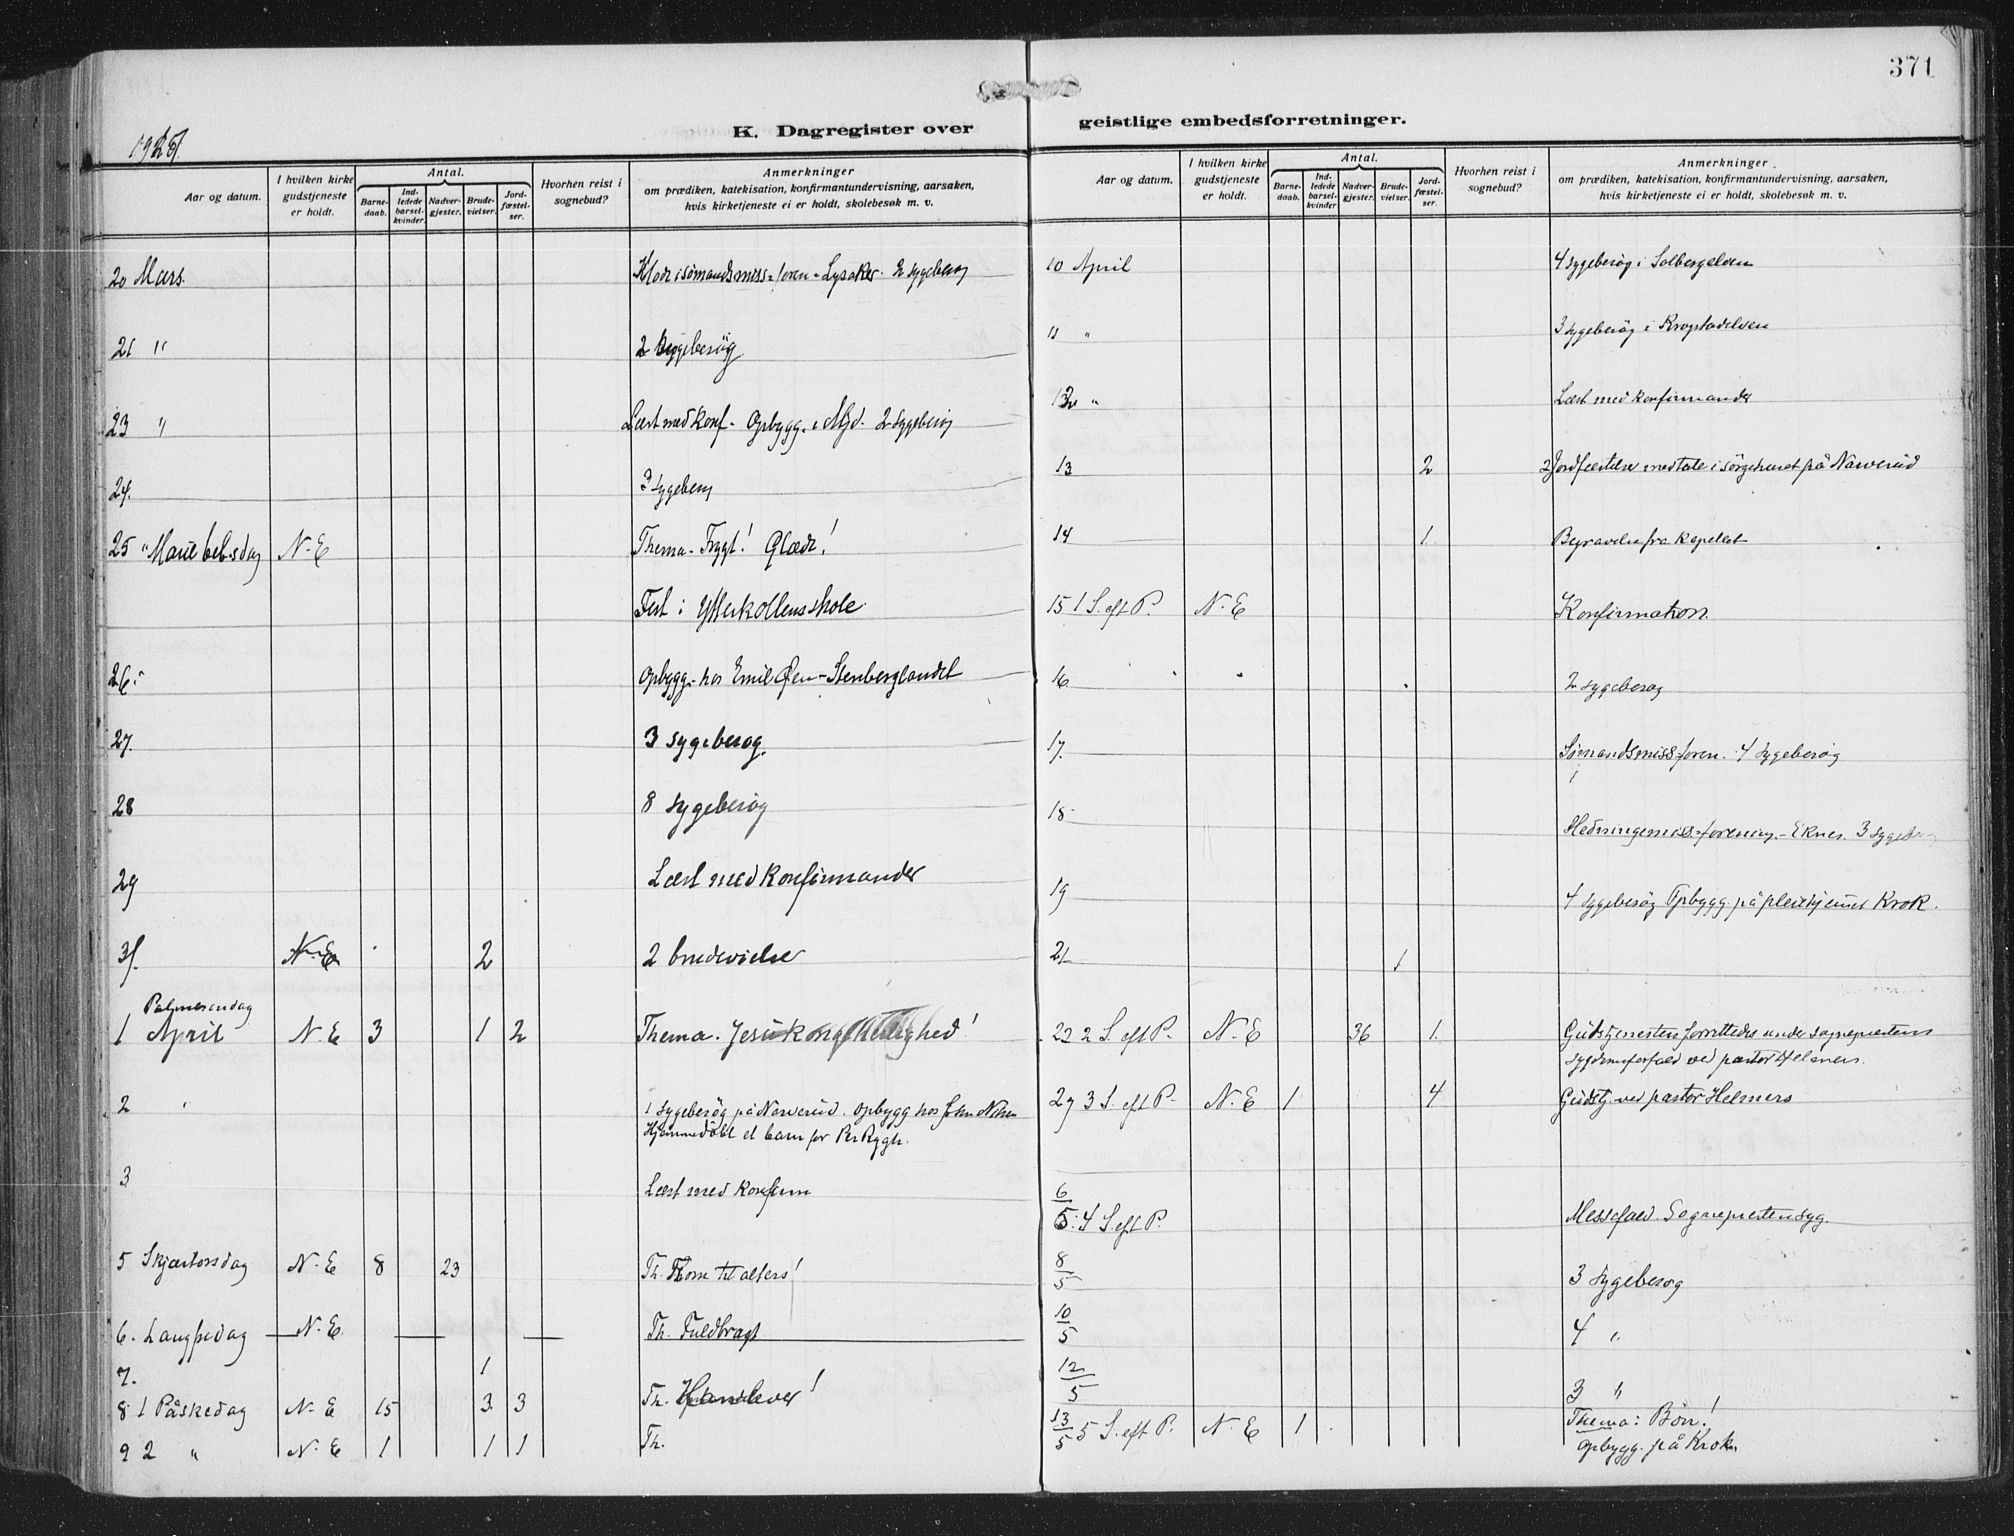 371
1928.
K. Dagregister over geistlige embedsforretninger.
Aar og datum.
I hvilken kirke gudstjeneste er holdt.
Antal.
Barne-daab.
Ind-ledede barsel-kvinder
Nadver-gjester.
Brude-vielser.
Jord-fæstel-ser.
Hvorhen reist i sognebud?
Anmerkninger
om prædiken, katekisation, konfirmantundervisning, aarsaken,
hvis kirketjeneste ei er holdt, skolebesøk m. v.
20 Mars. Møde i sømandsmiss-foren - Lysaker. 2 sygebesøg
21 " 2 sygebesøg.
23 " Læst med konf - Opbygg. i Mjd. 2 sygebesøg
24. 3 sygebesøg
25 " Marie beb.sdag N. E Thema - Frygt! Glæde!
Fest i Ytterkollens skole.
26. Opbygg. hos Emil Øen - Stenberglandet
27. 3 sygebesøg.
28 8 sygebesøg
29 Læst med konfirmander
31. N. E 2 2 brudevielser
Palmesøndag
1 April N. E 3 1 2 Thema. Jesu kongeherlighed!
2 " 1 sygebesøg på Narverud. Opbygg hos John Nilsen
Hjemmedöbt et barn for Per Rygh.
3 Læst med konfirm
5 Skjærtorsdag N. E 8 23 Th. Kom til alters!
6. Langfredag N. E. Th. Fuldbragt
7. 1
8 1 Påskedag N. E 15 3 3 Th. Han lever!
9 2 " N. E 1 1 1 Th.
Aar og datum.
I hvilken kirke gudstjeneste er holdt.
Antal.
Barne-daab.
Ind-ledede barsel-kvinder
Nadver-gjester.
Brude-vielser.
Jord-fæstel-ser.
Hvorhen reist i sognebud?
Anmerkninger
om prædiken, katekisation, konfirmantundervisning, aarsaken,
hvis kirketjeneste ei er holdt, skolebesøk m. v.
10 April 4 sygebesøg i Solbergelven
11 " 3 sygebesøg i Krogstadelven
12 " Læst med konfirmander
13 2 2 Jordfæstelser med tale i sörgehuset på Narverud
14 1 Begravelse fra kapellet
15 1 S. eft P. N. E Konfirmation.
16 2 sygebesøg
17. Sömandsmiss-foren. 4 sygebesøg
18 Hedningemiss-forening. - Eknes. 3 sygebesøg
19 4 sygebesøg Opbygg. på pleiehjemmet Krok.
21 1
22 2 S. eft P. N. E 36 1. Gudstjenesten forrettedes under sogneprestens
sygdomsforfald ved pastor Helmers.
29 3 S. eft P. N. E 1 4 Gudstj. ved pastor Helmers
6/5: 4 S. eft P. Messefald. Sognepresten syg.
8/5 3 sygebesøg
10/5 4 "
12/5 3 "
13/5 5 S. eft P. N. E 1 Thema: Bön!
Opbygg. på Krok.